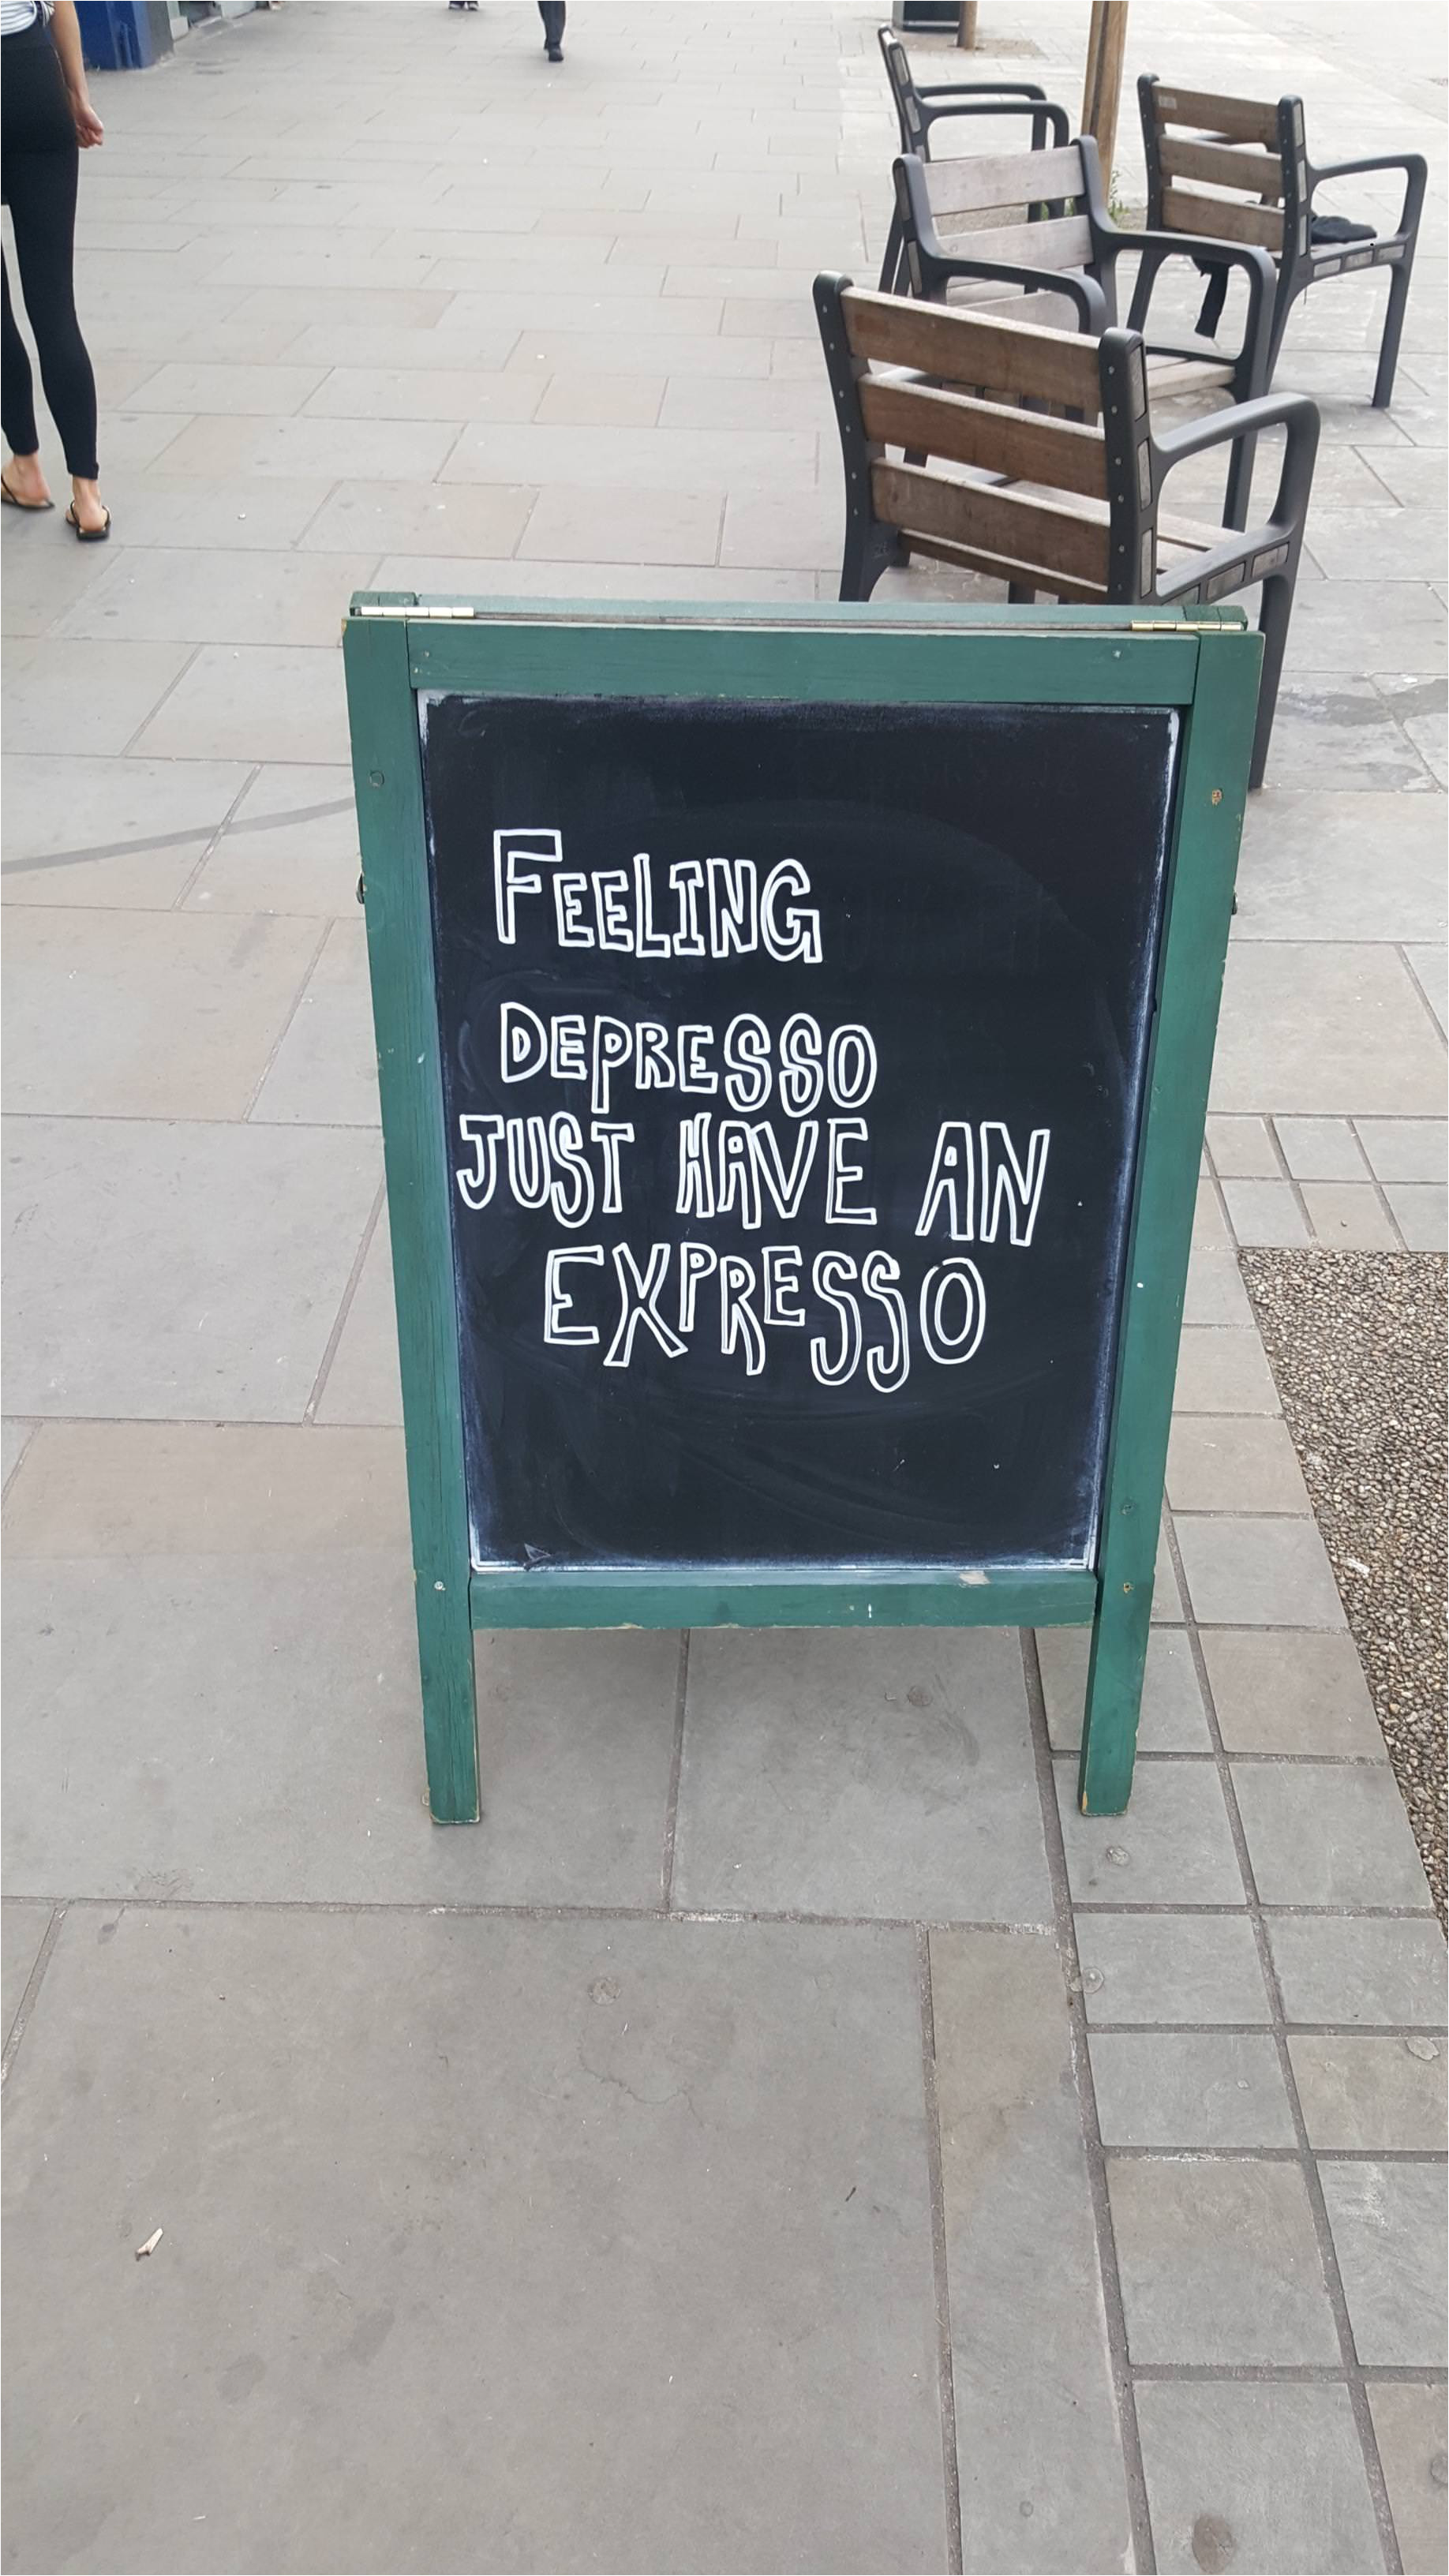 FEELING
DEPRESSO
JUST HAVE AN
EXPRESSO